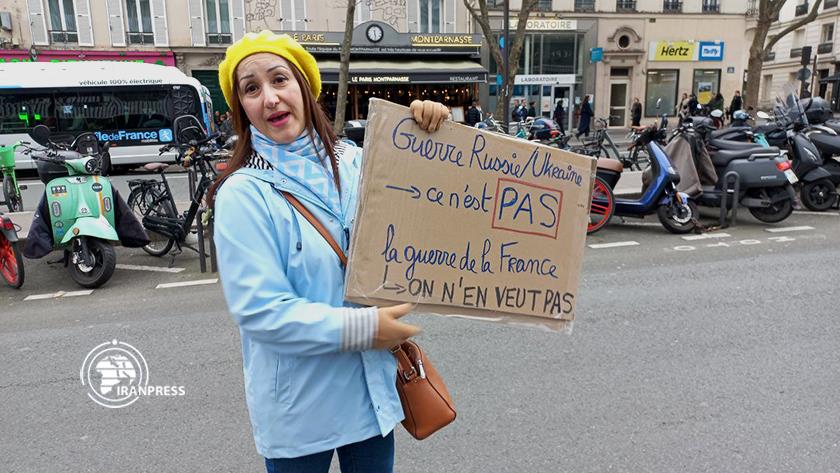 véhicule 100% électrique
îledeFrance
LE PARIS MONTPARNASSE
LE PARIS MONTPARNASSE RESTAURANT
LABORATOIRE
LABORATOIRE
LABORATOIRE
Hertz
Guerre Russie/Ukraine
→ ce n'est PAS
la guerre de la France
↳ ON N'EN VEUT PAS
IRANPRESS